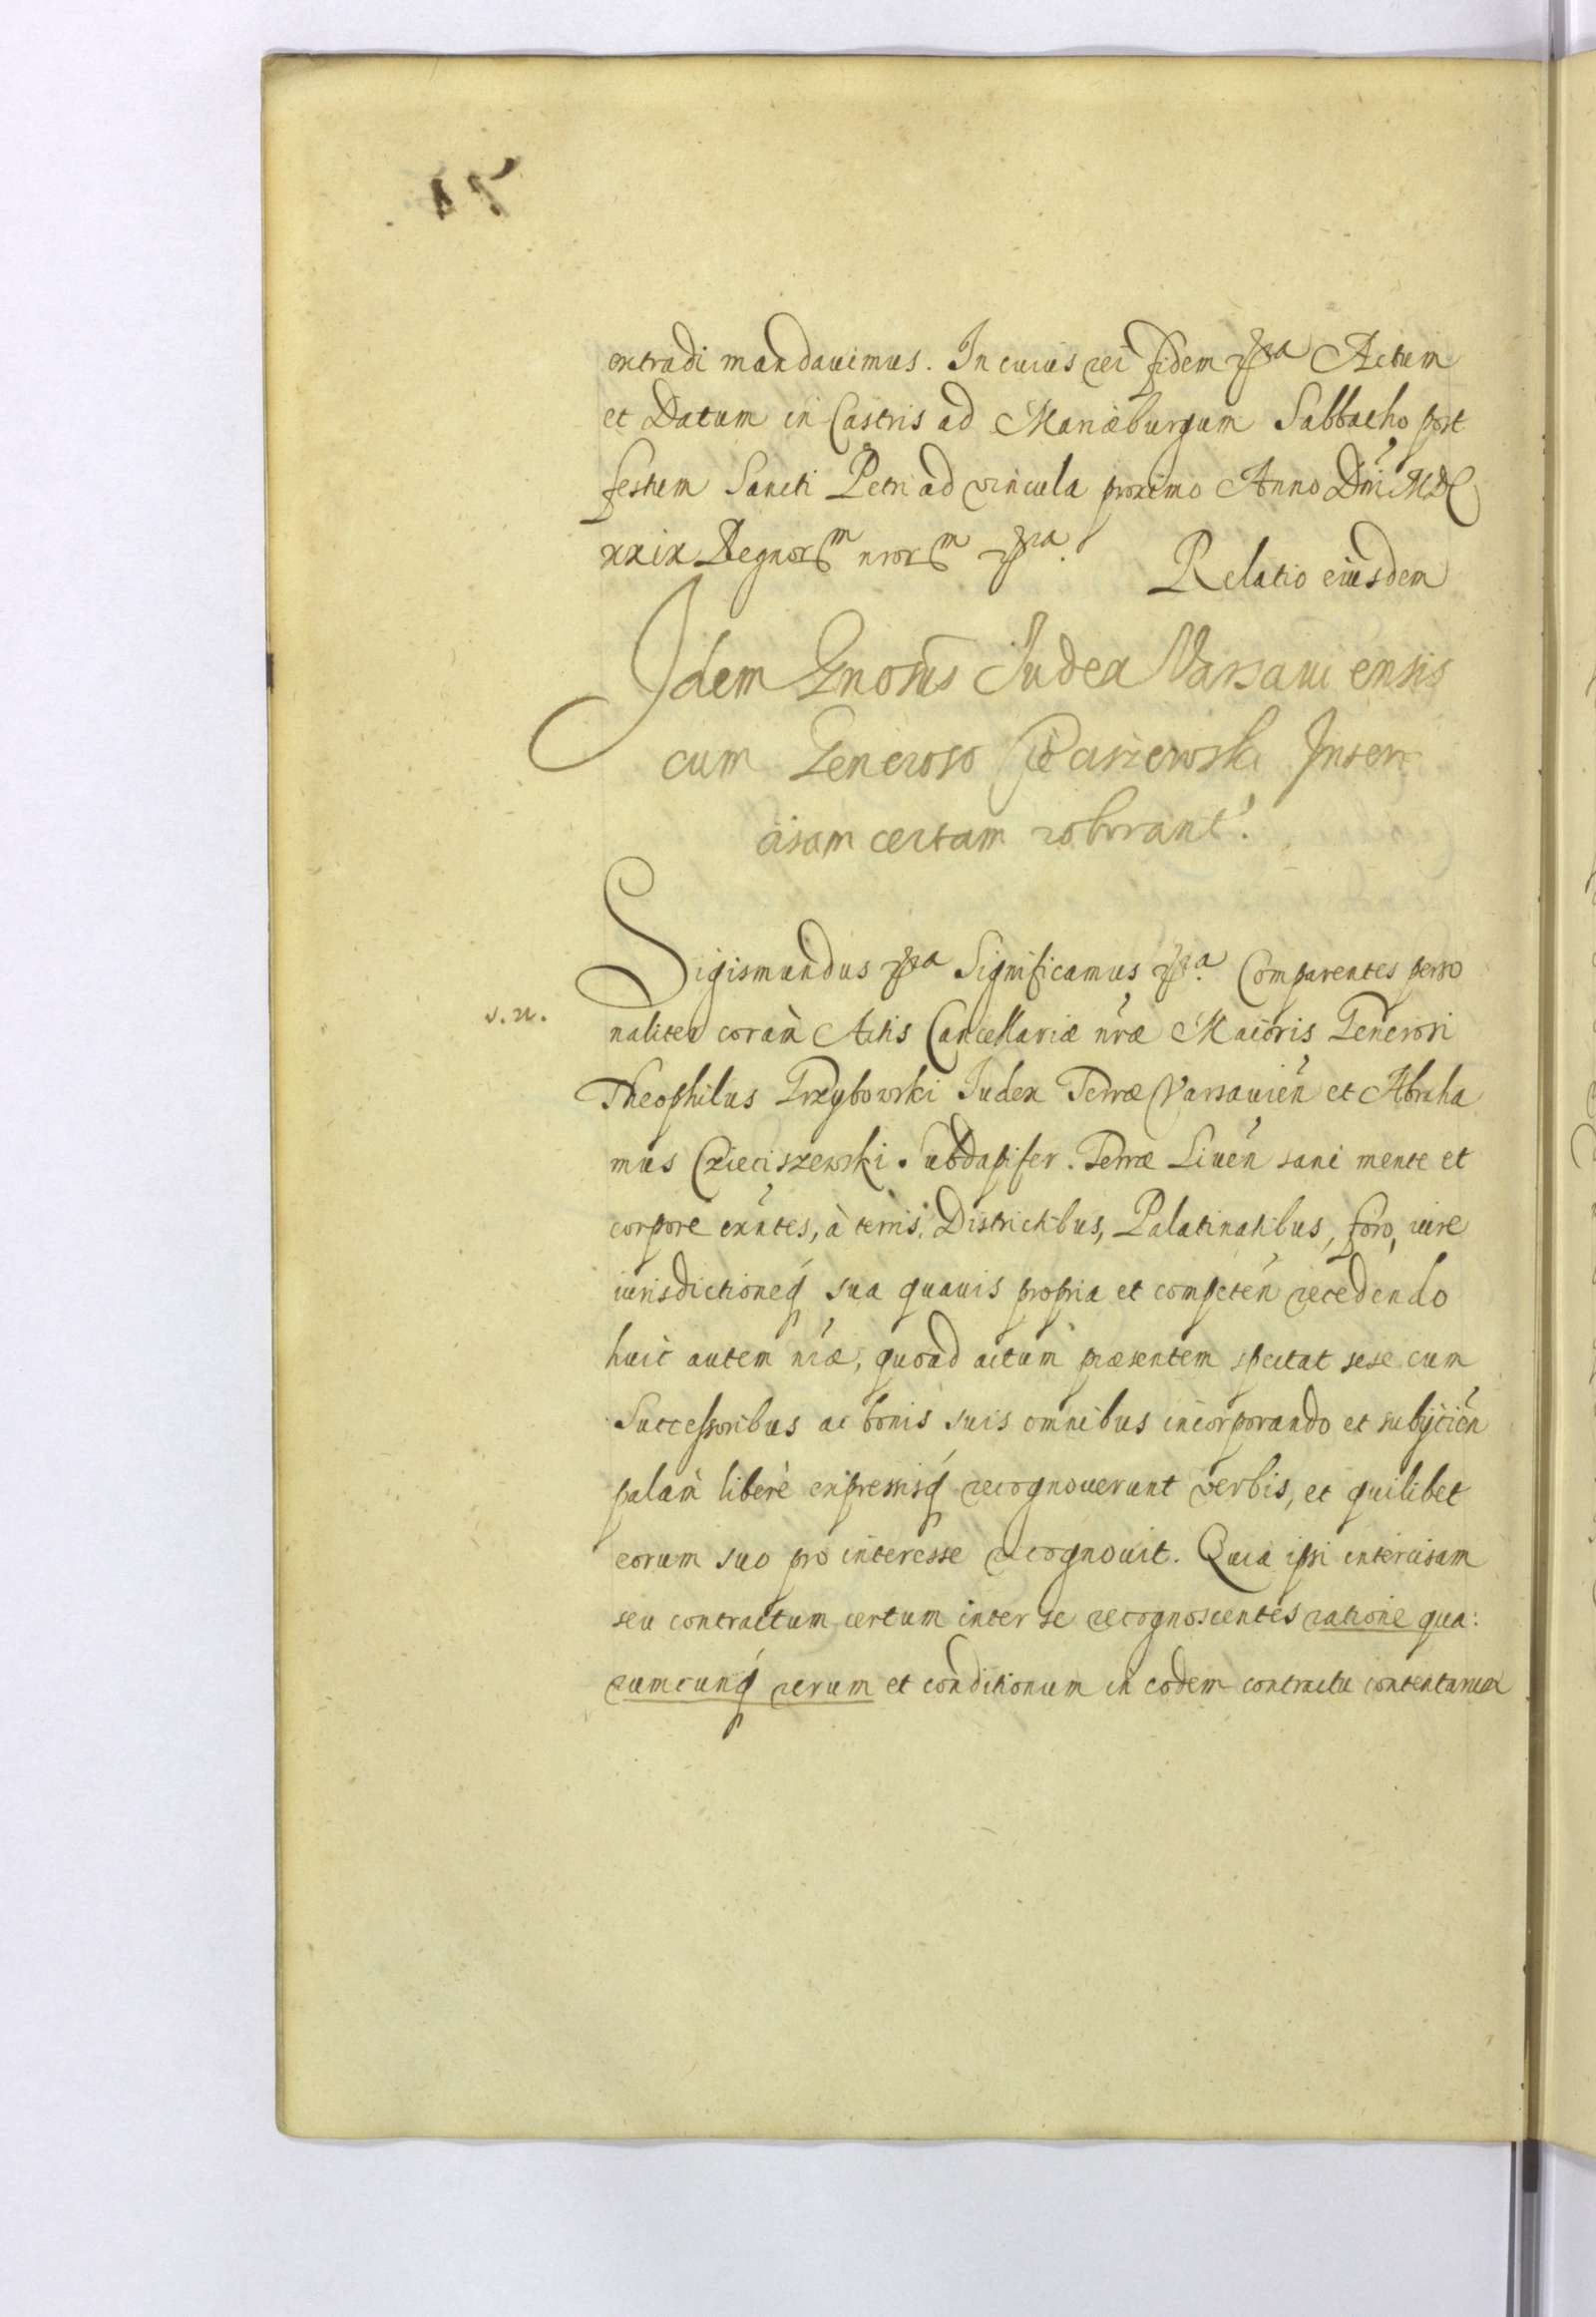 extradi mandauimus. In cuius rei fidem etca Actum
et Datum in Castris ad Mariæburgum Sabbatho post
festum Sancti Petri ad vincula proximo Anno Dni MDC
xxix Regnorm nrorm etca.
Relatio eiusdem
Idem Gnosus Iudex Varsauiensis
cum Generoso Inter
cisam certam roborant.
Sigismundus etca Significamus etca. Comparentes perso
v.n.
naliter coram Actis Cancellariæ nræ Maioris Generosi
Theophilus Grzybowski Iudex Terræ Varsauien et Abraha
mus Czieciszewski Subdapifer Terræ Liuen sani mente et
corpore exntes, à terris, Districtibus, Palatinatibus, foro, iure
iurisdictioneq sua quauis propria et competen recedendo
huic autem nræ, quoad actum præsentem spectat sese cum
Successoribus ac bonis suis omnibus incorporando et subijcien
palam liberè expressisq recognouerunt verbis, et quilibet
eorum suo pro interesse recognouit. Quia ipsi intercisam
seu contractum certum inter se recognoscentes ratione qua:
rumcunq rerum et conditionum in eodem contractu contentarum